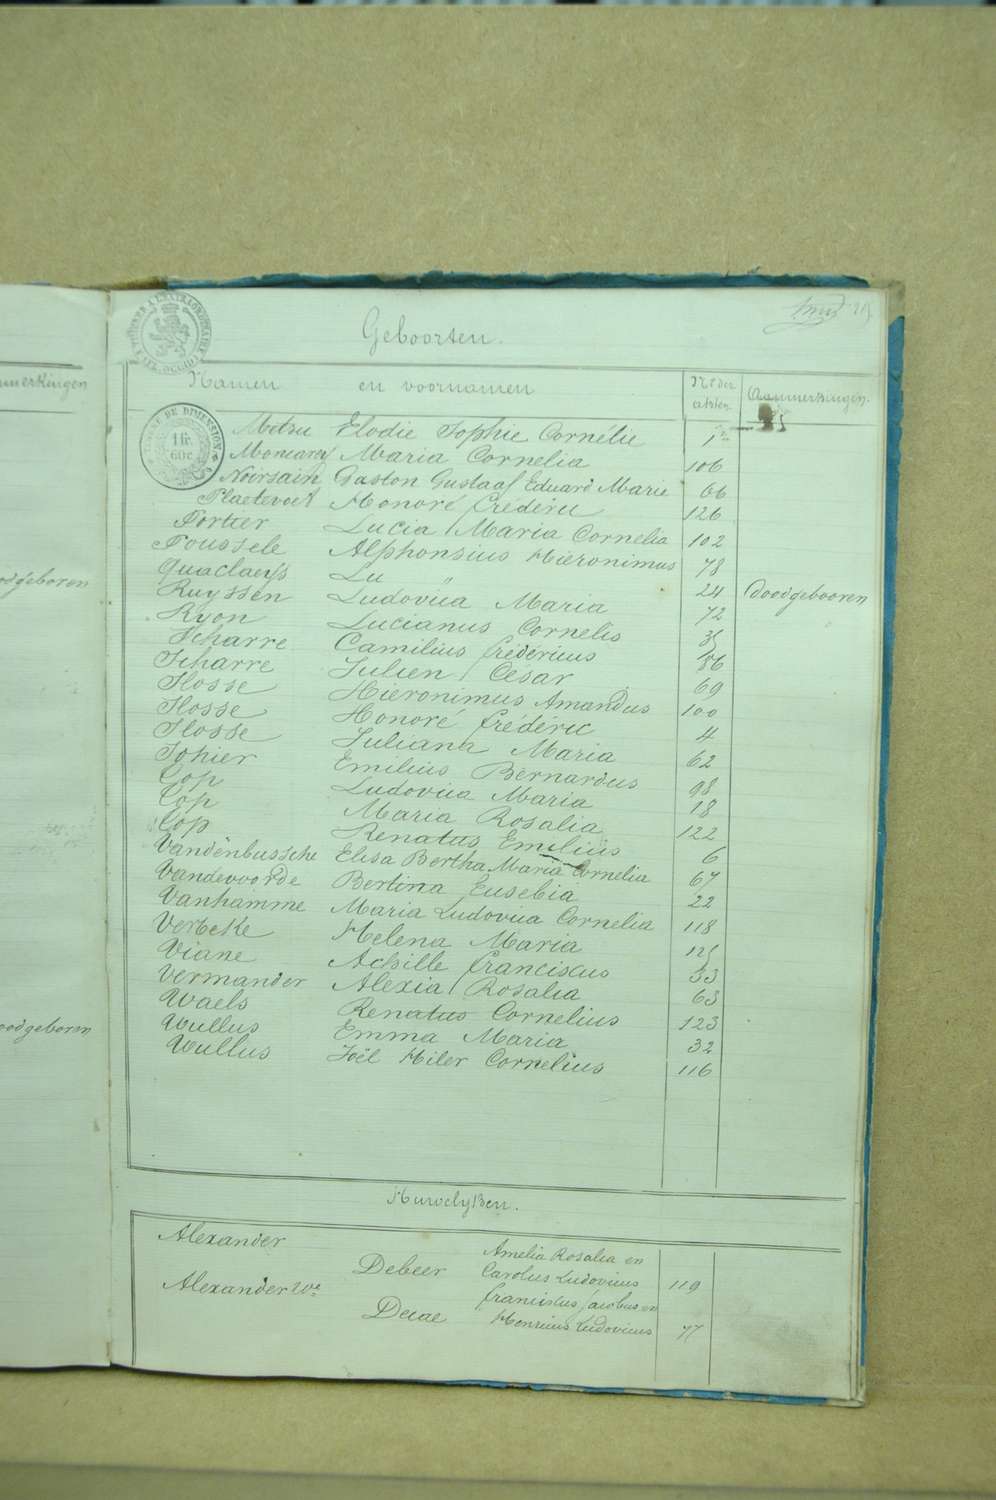 Geboorten.
Namen en voornamen Nr der akten Aanmerkingen.
TIMBRE DE DIMENSION
1 fr. 60 c.
Elodie Sophie Cornélie 1
Maria Cornelia 106
Noirsain Gaston Gustaaf Eduard Marie 66
Plaetevoet Honoré Frédéric 126
Portier Lucia Maria Cornelia 102
Poussele Alphonsius Hieronimus 78
Quaclaeys Lu " 24 doodgebooren
Ruyssen Ludovica Maria 72
Ryon Lucianus Cornelis 35
Scharre Camilius Frédéricus 86
Scharre Julien César 69
Slosse Hieronimus Amandus 100
Slosse Honoré Frédéric 4
Slosse Juliana Maria 62
Sohier Emilius Bernardus 98
Top Ludovica Maria 18
Top Maria Rosalia 122
Top Renatus Emilius 6
Vandenbussche Elisa Bertha Maria Cornelia 67
Vandevoorde Bertina Eusebia 22
Vanhamme Maria Ludovica Cornelia 118
Verbeke Helena Maria 125
Viane Achille Franciscus 53
Vermander Alexia Rosalia 63
Waels Renatus Cornelius 123
Wullus Emma Maria 32
Wullus Joël Hiler Cornelius 116
Huwelyken.
Alexander
Debeer Amelia Rosalia en
Carolus Ludovicus 119
Alexander We
Decae Franciscus Jacobus en
Henricus Ludovicus 77
Aanmerkingen
doodgeboren
doodgeboren